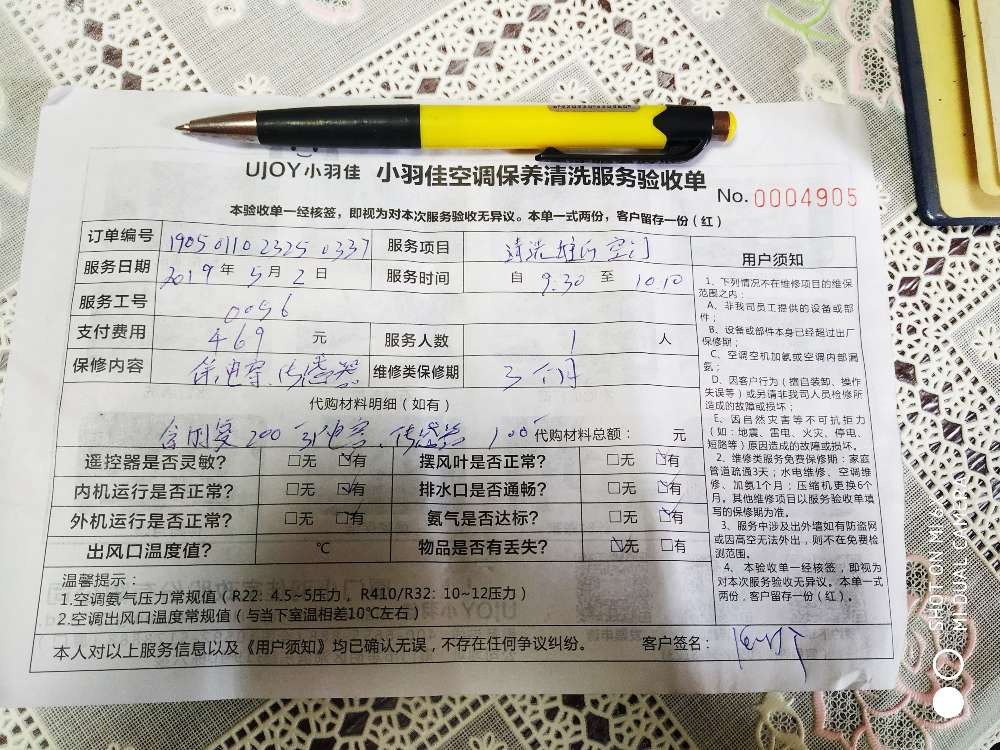 UJOY小羽佳 小羽佳空调保养清洗服务验收单
No. 0004905
本验收单一经核签，即视为对本次服务验收无异议。本单一式两份，客户留存一份（红）
订单编号 1905 0110 2325 0337 服务项目 清洗 空
服务日期 2019 年 5 月 2 日 服务时间 自 9.30 至 10.10
服务工号 0056
支付费用 469 元 服务人数 1 人
保修内容 传感器 维修类保修期 3个月
代购材料明细（如有）
200 传感器 100 代购材料总额： 元
遥控器是否灵敏？ □无 □有 摆风叶是否正常？ □无 □有
内机运行是否正常？ □无 □有 排水口是否通畅？ □无 □有
外机运行是否正常？ □无 □有 氨气是否达标？ □无 □有
出风口温度值？ ℃ 物品是否有丢失？ □无 □有
温馨提示：
1.空调氨气压力常规值（R22: 4.5~5压力，R410/R32: 10~12压力）
2.空调出风口温度常规值（与当下室温相差10℃左右）
本人对以上服务信息以及《用户须知》均已确认无误，不存在任何争议纠纷。 客户签名：
用户须知
1、下列情况不在维修项目的维保
范围之内：
A、非我司员工提供的设备或部
件；
B、设备或部件本身已经超过出厂
保修期；
C、空调空机加氨或空调内部漏
氨；
D、因客户行为（擅自装卸、操作
失误等）或另请非我司人员检修所
造成的故障或损坏；
E、因自然灾害等不可抗拒力
（如：地震、雷电、火灾、停电、
短路等）原因造成的故障或损坏。
2、维修类服务免费保修期：家庭
管道疏通3天；水电维修、空调维
修、加氨1个月；压缩机更换6个
月。其他维修项目以服务验收单填
写的保修期为准。
3、服务中涉及出外墙如有防盗网
或因高空无法外出，则不在免费检
测范围。
4、本验收单一经核签，即视为
对本次服务验收无异议。本单一式
两份，客户留存一份（红）。
SHOT ON MI 9
MI DUAL CAMERA